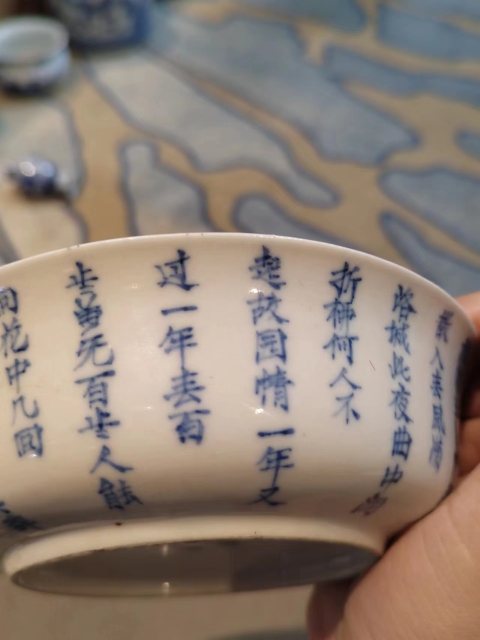 散入春風滿
洛城此夜曲中聞
折柳何人不
起故园情一年又
过一年春百
岁曾无百岁人能
向花中几回